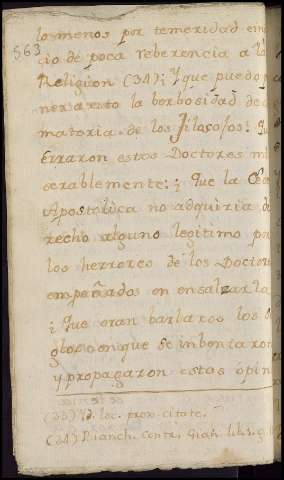 lo menos por temeridad en
563
cio de poca reberencia a la
Religion (34); Y que puedo
ner a esto la berbosidad de
matoria de los Filosofos:
Erraron estos Doctores mi
serablemente: ¿ Que la
Apostolica no adquiria de
recho alguno legitimo por
los herrores de los Doctore
empeñados en ensalzarla
¿ Que eran barbaros los
glos en que se inbentaron
y propagaron estas opin
(33) Id. loc. prox. citato.
(34) Bianch. Contr. Gian. lib. 1. §